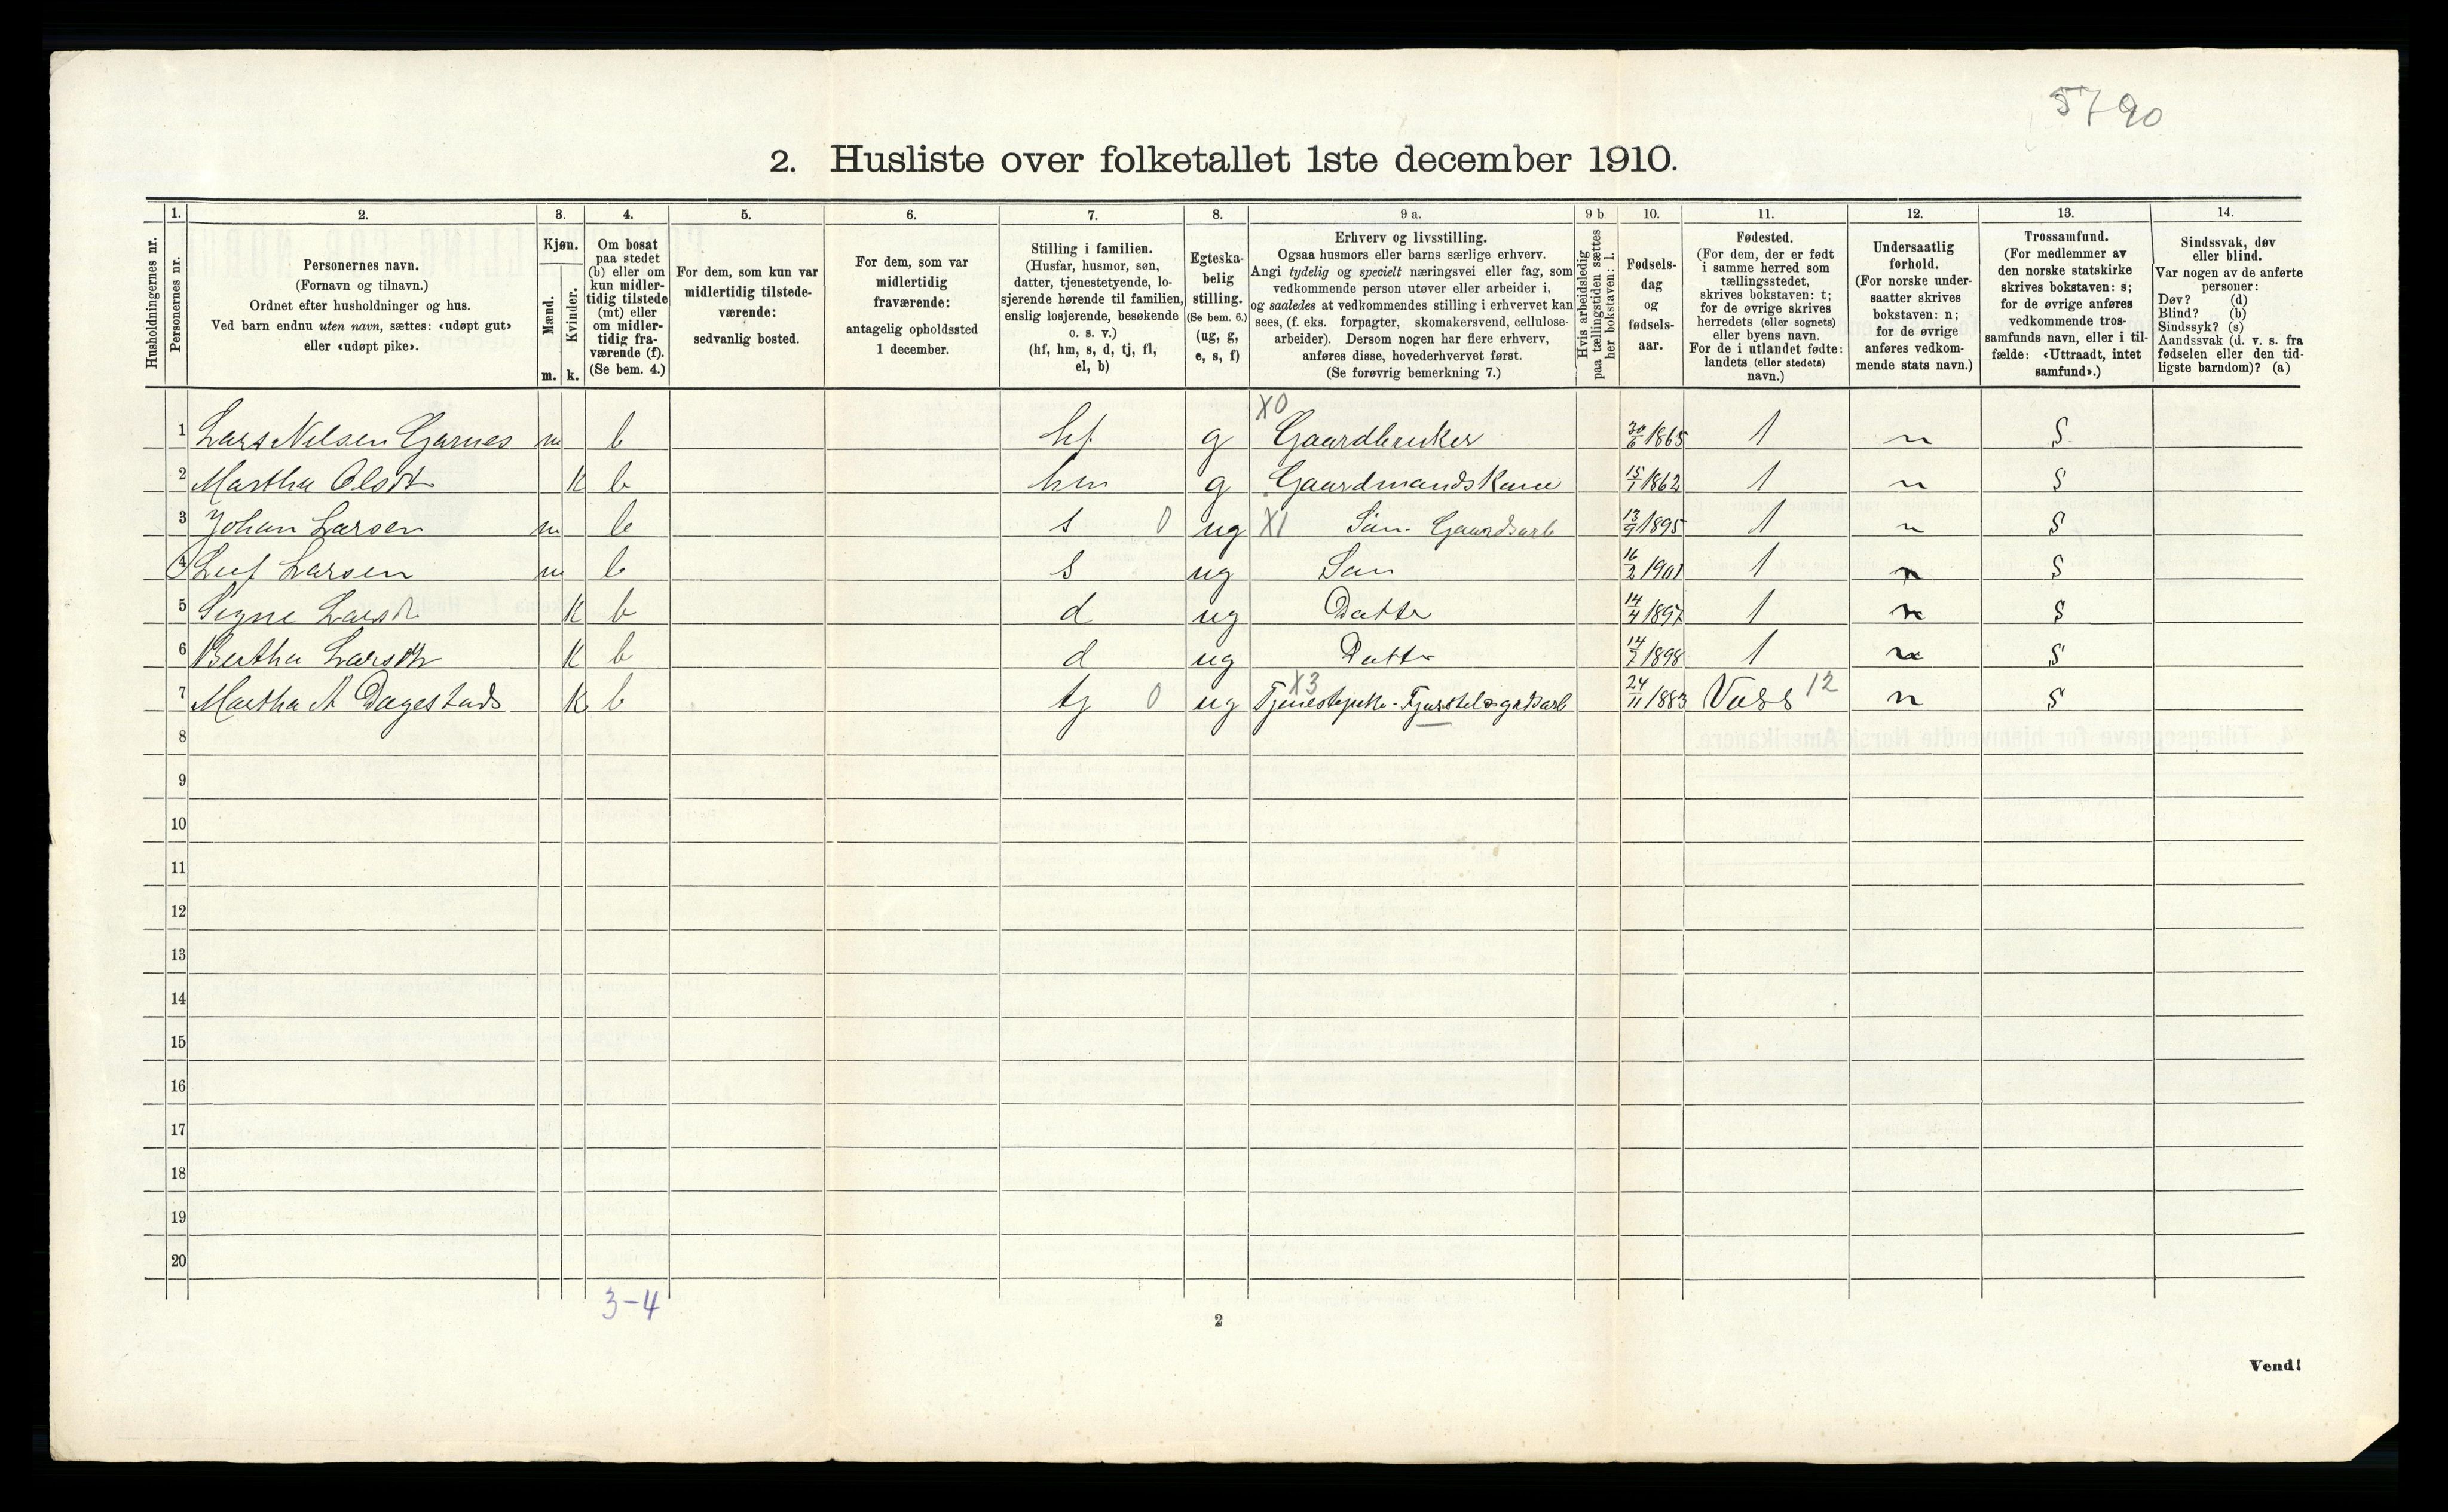 5790
2. Husliste over folketallet 1ste december 1910.
Husholdningernes nr.
1. Personernes nr.
2. Personernes navn.
(Fornavn og tilnavn.)
Ordnet efter husholdninger og hus.
Ved barn endnu uten navn, sættes: «udøpt gut»
eller «udøpt pike».
3. Kjøn.
Mænd. Kvinder.
m. k.
4. Om bosat
paa stedet
(b) eller om
kun midler-
tidig tilstede
(mt) eller
om midler-
tidig fra-
værende (f).
(Se bem. 4.)
5. For dem, som kun var
midlertidig tilstede-
værende:
sedvanlig bosted.
6. For dem, som var
midlertidig
fraværende:
antagelig opholdssted
1 december.
7. Stilling i familien.
(Husfar, husmor, søn,
datter, tjenestetyende, lo-
sjerende hørende til familien,
enslig losjerende, besøkende
o. s. v.)
(hf, hm, s, d, tj, fl,
el, b)
8. Egteska-
belig
stilling.
(Se bem. 6.)
(ug, g,
e, s, f)
9 a. Erhverv og livsstilling.
Ogsaa husmors eller barns særlige erhverv.
Angi tydelig og specielt næringsvei eller fag, som
vedkommende person utøver eller arbeider i,
og saaledes at vedkommendes stilling i erhvervet kan
sees, (f. eks. forpagter, skomakersvend, cellulose-
arbeider). Dersom nogen har flere erhverv,
anføres disse, hovederhvervet først.
(Se forøvrig bemerkning 7.)
9 b Hvis arbeidsledig
paa tællingstiden sættes
her bokstaven: l.
10. Fødsels-
dag
og
fødsels-
aar.
11. Fødested.
(For dem, der er født
i samme herred som
tællingsstedet,
skrives bokstaven: t;
for de øvrige skrives
herredets (eller sognets)
eller byens navn.
For de i utlandet fødte:
landets (eller stedets)
navn.)
12. Undersaatlig
forhold.
(For norske under-
saatter skrives
bokstaven: n;
for de øvrige
anføres vedkom-
mende stats navn.)
13. Trossamfund.
(For medlemmer av
den norske statskirke
skrives bokstaven: s;
for de øvrige anføres
vedkommende tros-
samfunds navn, eller i til-
fælde: «Uttraadt, intet
samfund».)
14. Sindssvak, døv
eller blind.
Var nogen av de anførte
personer:
Døv? (d)
Blind? (b)
Sindssyk? (s)
Aandssvak (d. v. s. fra
fødselen eller den tid-
ligste barndom)? (a)
X0
1 Lars Nilsen Garnes m b hf g Gaardbruker 30/6 1865 1 n S
2 Martha Olsdt K b hm g GaardmandsKone 15/1 1862 1 n S
3 Johan Larsen m b s 0 ug X1 Søn - Gaardsarb 13/9 1895 1 n S
4 Leif Larsen m b s ug Søn 16/2 1901 1 n S
5 Signe Larsdt K b d ug Datter 14/4 1897 1 n S
6 Bertha Larsdtr K b d ug Datter 14/7 1898 1 n S
7 Martha A Dagestads K b tj 0 ug X3 Tjenestepike - 24/11 1883 Voss 12 n S
8
9
10
11
12
13
14
15
16
17
18
19
20
3-4
2
Vend!